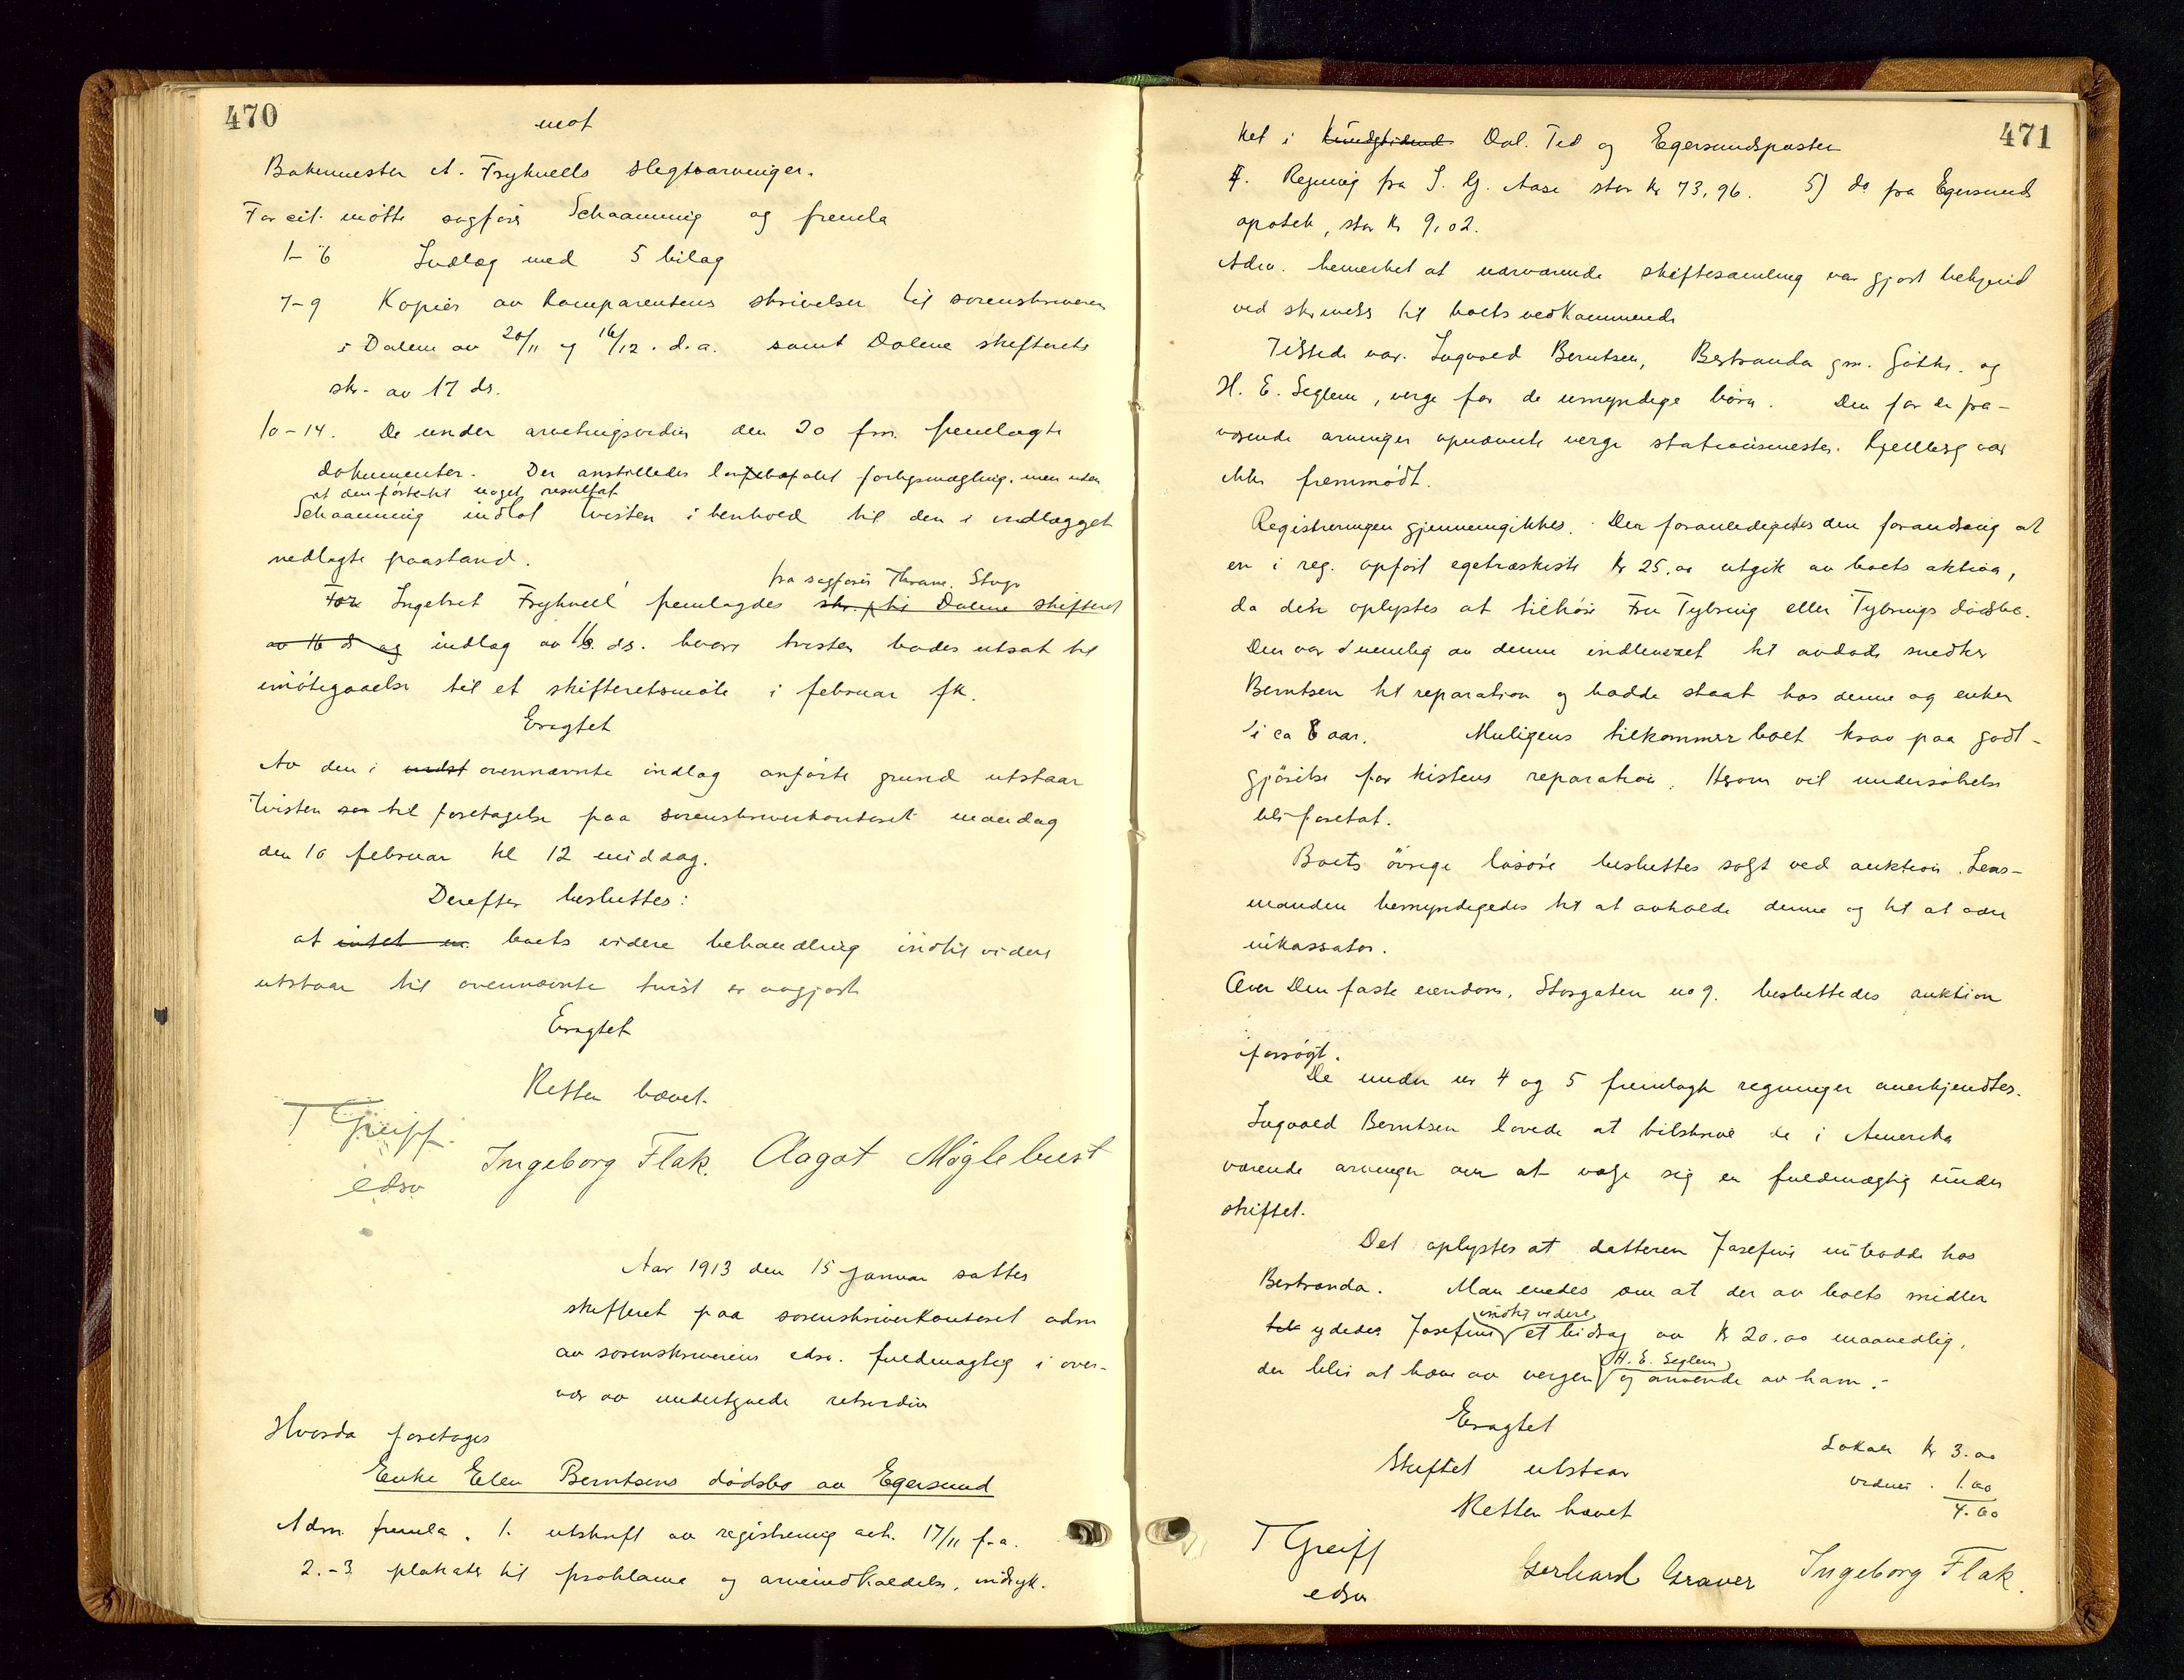 470
mot
Bakermester A. Frykvells slegtsarvinger.
For cit. møtte sagfører Schaanning og fremla
1-6 Indlæg med 5 bilag
7-9 Kopier av komparentens skrivelser til sorenskriveren
i Dalene av 20/11 og 16/12. d.a. samt Dalene skifterets
skr. av 17 ds.
10-14. De under arvetingsordin den 20 fm. fremlagte
dokumenter. Der anstilledes forligsmægling, men uden
at den førte til noget resultat
Schaanning indlot tvisten i henhold til den i indlægget
nedlagte paastand.
fra sagfører Thrane, Stvgr
For Ingebret Frykvell fremlagdes skr. til Dalene skifteret
av 16 ds og indlæg av 18. ds. hvori tvisten bades utsat til
imøtegaaelse til et skifteretsmøte i februar fk.
Eragtet
Av den i indst ovennævnte indlæg anførte grund utstaar
tvisten til foretagelse paa sorenskriverkontoret mandag
den 10 februar kl 12 middag.
Derefter besluttes:
at intet boets videre behandling indtil videre
utstaar til ovennævnte tvist er avgjort
Eragtet
Retten hævet.
T Greiff.
edsv
Ingeborg Flak. Aagot Møglebust
Aar 1913 den 15 januar sattes
skifteret paa sorenskriverkontoret adm
av sorenskriverens edsv. fuldmægtig i over-
vær av undertegnede retsvidner
Hvorda foretages
Enke Elen Berntsens dødsbo av Egersund
Adm. fremla. 1. utskrift av registrering avh. 17/11 f.a.
2.-3 plakater til proklama og arveindkaldelse, indryk.
471
ket i Kundgtidend Dal. Tid og Egersundsposten
4. Regning fra S. G. Aase stor kr 73,96. 5) do fra Egersunds
apotek, stor kr 9,02.
Adm. bemerket at nærværende skiftesamling var gjort bekjend
ved skrivelse til boets vedkommende
Tilstede var. Ingvald Berntsen, Bertranda gm. Götke. og
H. E. Seglem, verge for de umyndige børn. Den for de fra-
værende arvinger opnævnte verge stationsmester. Kjellberg var
ikke fremmødt.
Registreringen gjennemgikkes. Den foranledigedes den forandring at
en i reg. opført egetræskiste kr 25.00 utgik av boets aktiva,
da den oplystes at tilhøre Fru Tybring eller Tybrings dødsbo.
Den var nemlig av denne indleveret til avdøde snedker
Berntsen til reparation og hadde staat hos denne og enken
i ca 8 aar. Muligens tilkommer boet krav paa godt-
gjørelse for kistens reparation. Herom vil undersøkelse
bli foretat.
Boets øvrige løsøre besluttes solgt ved auktion. Lens-
manden bemyndigedes til at avholde denne og til at være
inkassator.
Over Den faste eiendom, Storgaten no 9. besluttedes auktion
forsøgt.
De under nr 4 og 5 fremlagte regninger anerkjendtes.
Ingvald Berntsen lovede at tilskrive de i Amerika
værende arvinger om at vælge sig en fuldmægtig under
skiftet.
Det oplystes at datteren Josefine nu bodde hos
Bertranda. Man enedes om at der av boets midler
indtil videre
tilk ydedes Josefine et bidrag av kr 20.00 maanedlig,
H. E. Seglem
der blir at hæve av vergen og anvende av ham.
Eragtet
Skiftet utstaar
Lokale kr 3.00
vidner . 1.00
4.00
Retten hævet
T Greiff
edsv
Gerhard Graver Ingeborg Flak.